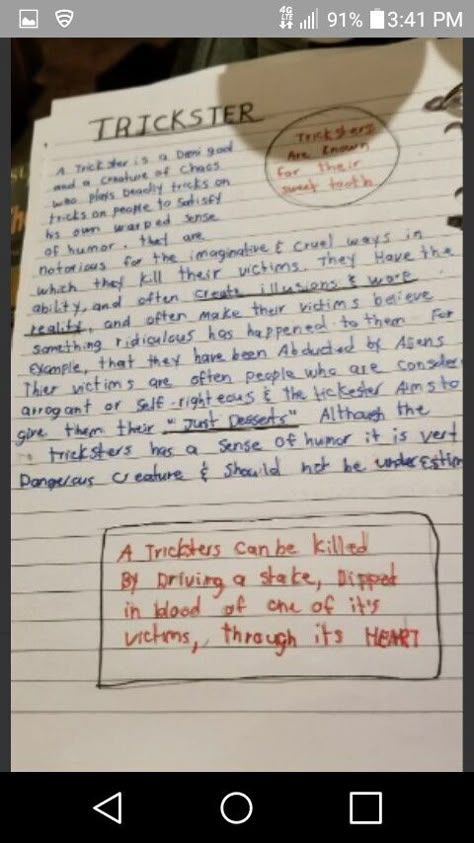 4G
LTE
91%
3:41 PM
TRICKSTER
Tricksters
Are known
for their
sweet tooth
A Trickster is a Demi god
and a creature of Chaos
who plays Deadly tricks on
tricks on people to satisfy
his own warped sense
of humor. they are
notorious for the imaginative & cruel ways in
which they kill their victims. They Have the
ability, and often create illusions & warp
reality, and often make their victims believe
something ridiculous has happened to them For
Example, that they have been Abducted by Aliens
Thier victims are often people who are consider
arrogant or self-righteous & the tickester Aims to
give them their "Just Desserts" Although the
tricksters has a sense of humor it is vert
Dangerous creature & should not be underestim
A Tricksters can be killed
By Driving a stake, Dipped
in blood of one of it's
victims, through its HEART